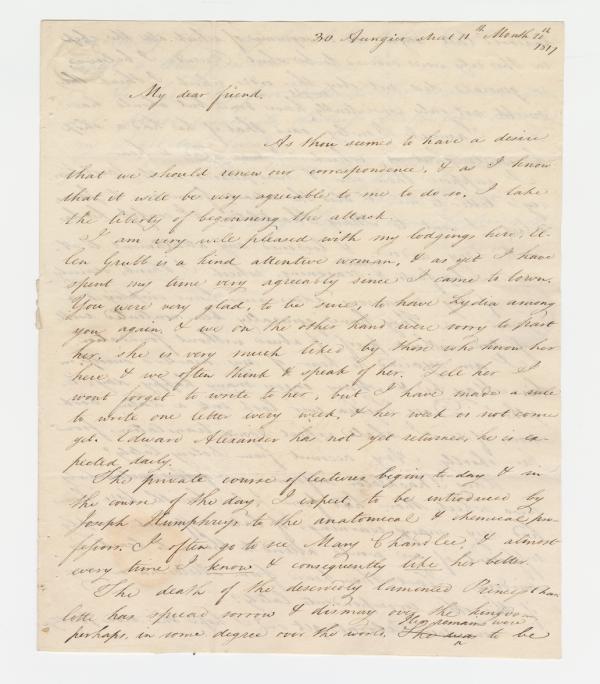 30 Aungier Street 11th Month 10th
1817
My dear friend.
As thou seemed to have a desire
that we should renew our correspondence, & as I know
that it will be very agreeable to me to do so, I take
the liberty of beginning the attack.
I am very well pleased with my lodgings here, El-
len Grubb is a kind attentive woman, & as yet I have
spent my time very agreeably since I came to town.
You were very glad, to be sure, to have Lydia among
you again, & we on the other hand were sorry to part
her, she is very much liked by those who know her
here & we often think & speak of her. Tell her I
wont forget to write to her, but I have made a rule
to write one letter every week, & her week is not come
yet. Edward Alexander has not yet returned, he is ex-
pected daily.
The private course of lectures begins to day & in
the course of the day, I expect, to be introduced by
Joseph Humphreys to the anatomical & chemical pro-
fessors. I often go to see Mary Chandlee, & almost
every time I know & consequently like her better.
The death of the deservedly lamented Princess Char
lotte has spread sorrow & dismay over the kingdom
perhaps, in some degree over the world. The was Her remains were to be